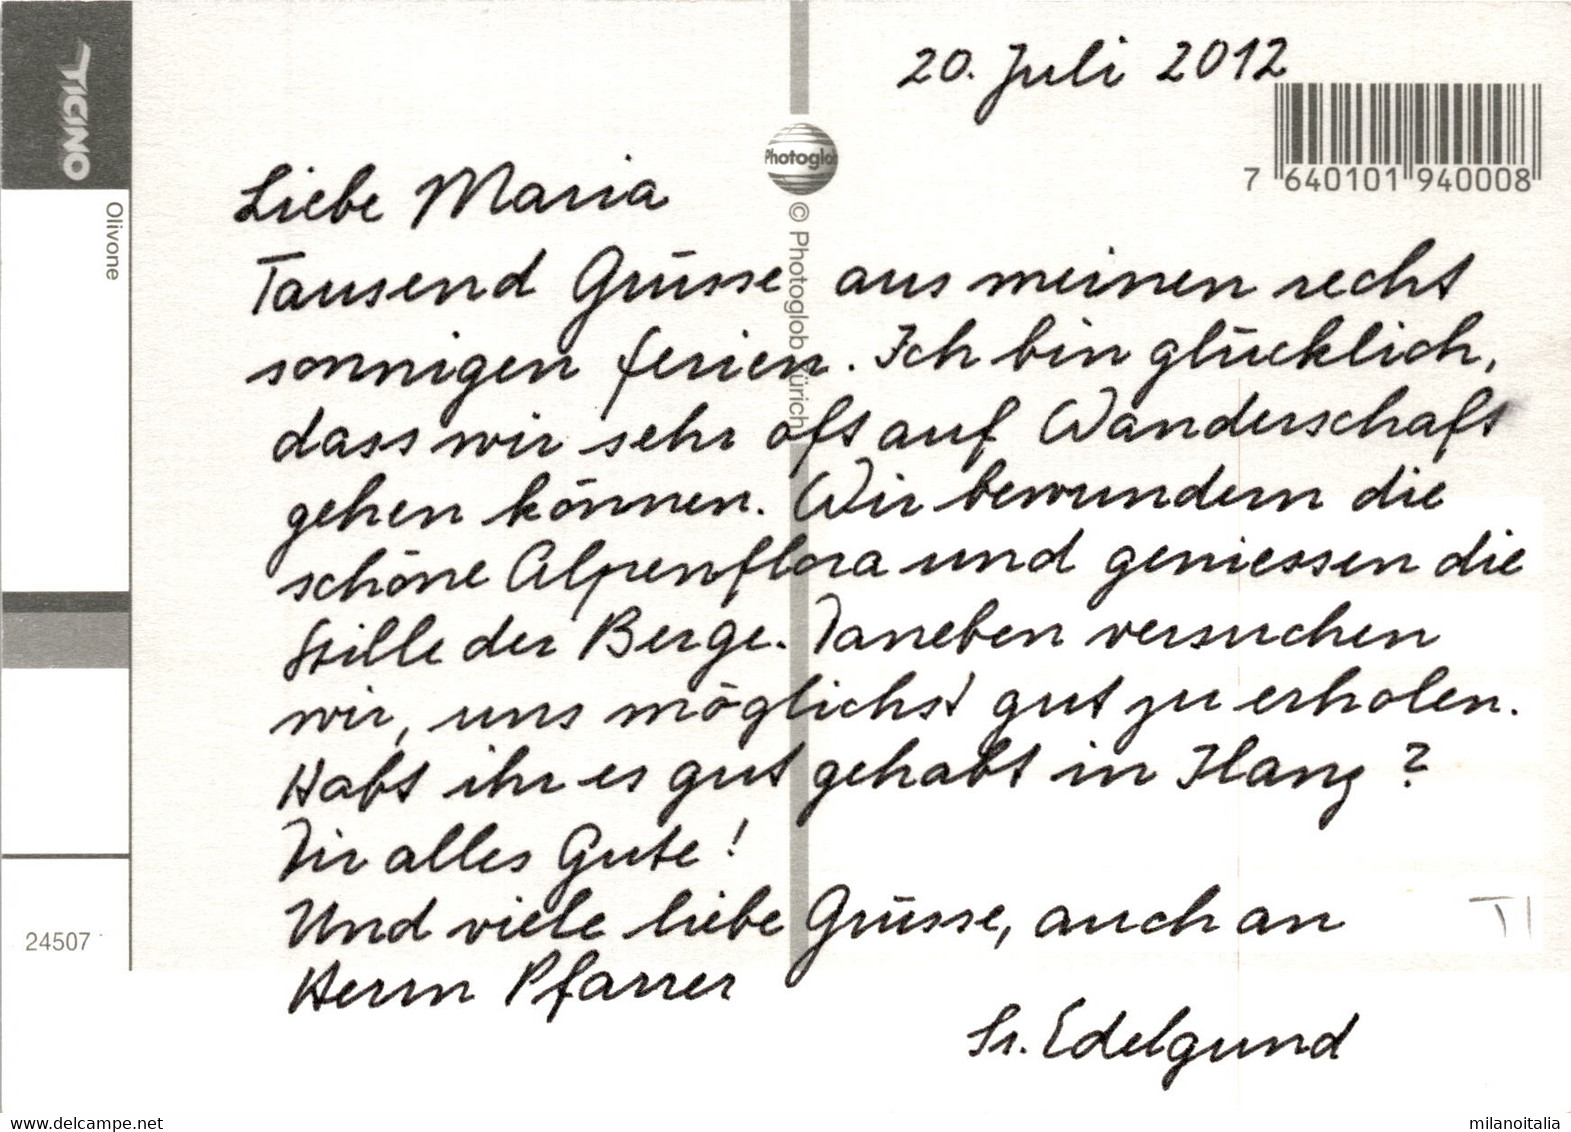 TICINO
Olivone
24507
Photoglo
© Photoglob Zürich
7 640101 940008
20. Juli 2012
Liebe Maria
Tausend Grüsse aus meinen recht
sonnigen Ferien. Ich bin glücklich,
dass wir sehr oft auf Wanderschaft
gehen können. Wir bewundern die
schöne Alpenflora und geniessen die
Stille der Berge. Daneben versuchen
wir, uns möglichst gut zu erholen.
Habt ihr es gut gehabt in Ilanz?
Dir alles Gute!
Und viele liebe Grüsse, auch an
Herrn Pfarrer
Sr. Edelgund
TI
delcampe.net
milanoitalia